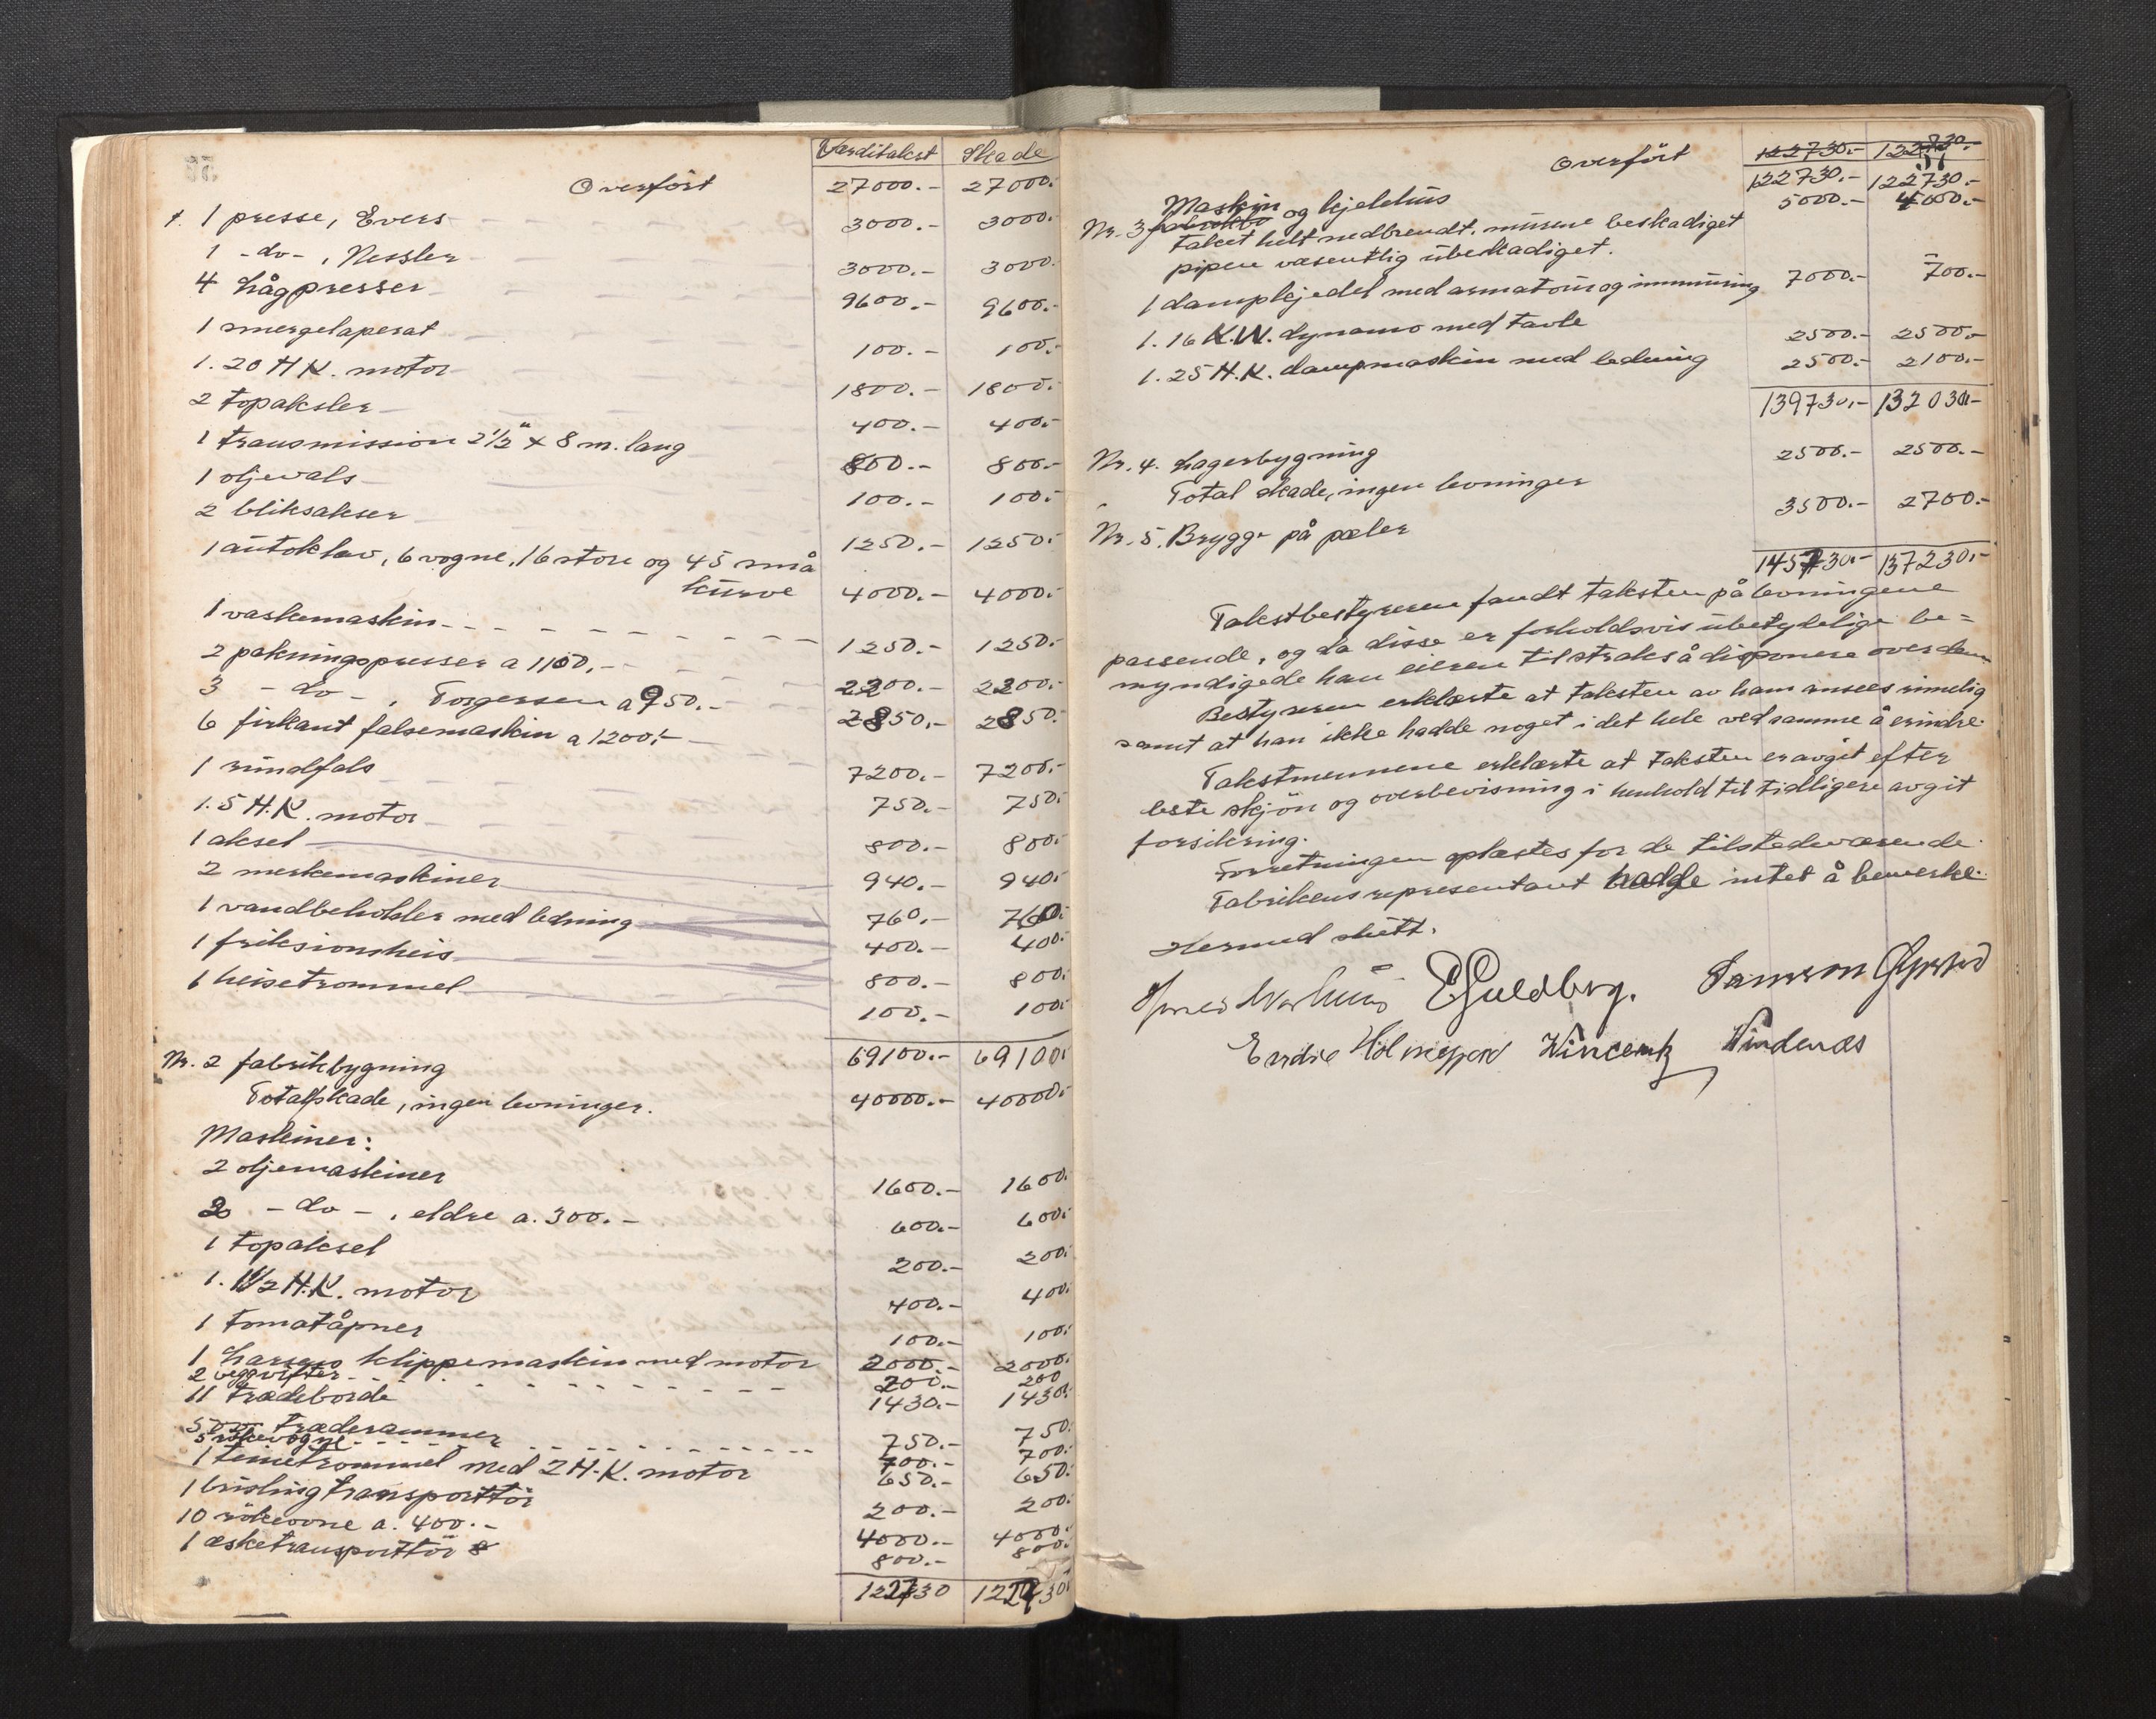 Værditakst Skade
Overført 27000.- 27000.-
1. 1 presse, Evers 3000.- 3000.-
1 -do-, Nessler 3000.- 3000.-
4 Lågpresser 9600.- 9600.-
1 smergelaperat 100.- 100.-
1. 20 H.K. motor 1800.- 1800.-
2 topaksler 400.- 400.-
1 transmission 2 1/2" x 8 m. lang 800.- 800.-
1 oljevals 100.- 100.-
2 bliksakser 1250.- 1250.-
1 autoklav, 6 vogne, 16 store og 45 små
kurve 4000.- 4000.-
1 vaskemaskin 1250.- 1250.-
2 pakningspresser a 1100.- 2200.- 2200.-
3 -do-, Torgersen a 950.- 2850.- 2850.-
6 firkant falsemaskin a 1200.- 7200.- 7200.-
1 rundfals 750.- 750.-
1. 5 H.K. motor 800.- 800.-
1 aksel 940.- 940.-
2 merkemaskiner 760.- 760.-
1 vandbeholder med ledning 400.- 400.-
1 friksionsheis 800.- 800.-
1 heisetrommel 100.- 100.-
69100.- 69100.-
Nr. 2 fabrikbygning
Totalskade, ingen levninger. 40000.- 40000.-
Maskiner:
2 oljemaskiner 1600.- 1600.-
2 -do-, eldre a. 300.- 600.- 600.-
1 topaksel 200.- 200.-
1. 1 1/2 H.K. motor 400.- 400.-
1 tomatåpner 100.- 100.-
1 klippemaskin med motor 2000.- 2000.-
2 vegvifter 200.- 200
11 trædeborde 1430.- 1430.-
500 træderammer 750.- 750.-
5 røkevogne 700.- 700.-
1 teinetrommel med 2 H.K. motor 650.- 650.-
1 brislingtransporttör 200.- 200.-
10 rökeovne a. 400.- 4000.- 4000.-
1 æsketransporttör 800.- 800.-
122730 122730
Overfört 122730.- 122730.-
57
122730.- 122730.-
Nr. 3 Maskin og kjelehus 5000.- 4000.-
Taket helt nedbrendt. murene beskadiget
pipen væsentlig ubeskadiget.
1 dampkjedel med armatour og immuring 7000.- 700.-
1. 16 K.W. dynamo med tavle 2500.- 2500.-
1. 25 H.K. dampmaskin med ledning 2500.- 2100.-
139730.- 132030.-
Nr. 4. Lagerbygning 2500.- 2500.-
Total skade, ingen levninger
Nr. 5. Brygge på pæler 3500.- 2700.-
145730.- 137230.-
Takstbestyreren fandt taksten på levningene
passende, og da disse er forholdsvis ubetydelige be=
myndigede han eieren til straks å disponere over dem
Bestyreren erklærte at taksten av ham ansees rimelig
samt at han ikke hadde noget i det hele ved samme å erindre.
Takstmennene erklærte at taksten er avgit efter
beste skjön og overbevisning i henhold til tidligere avgit
forsikring.
Forretningen oplæstes for de tilstedeværende.
Fabrikens representant hadde intet å bemerke.
Hermed slutt.
E Guldberg.
Vincentz Vindenæs